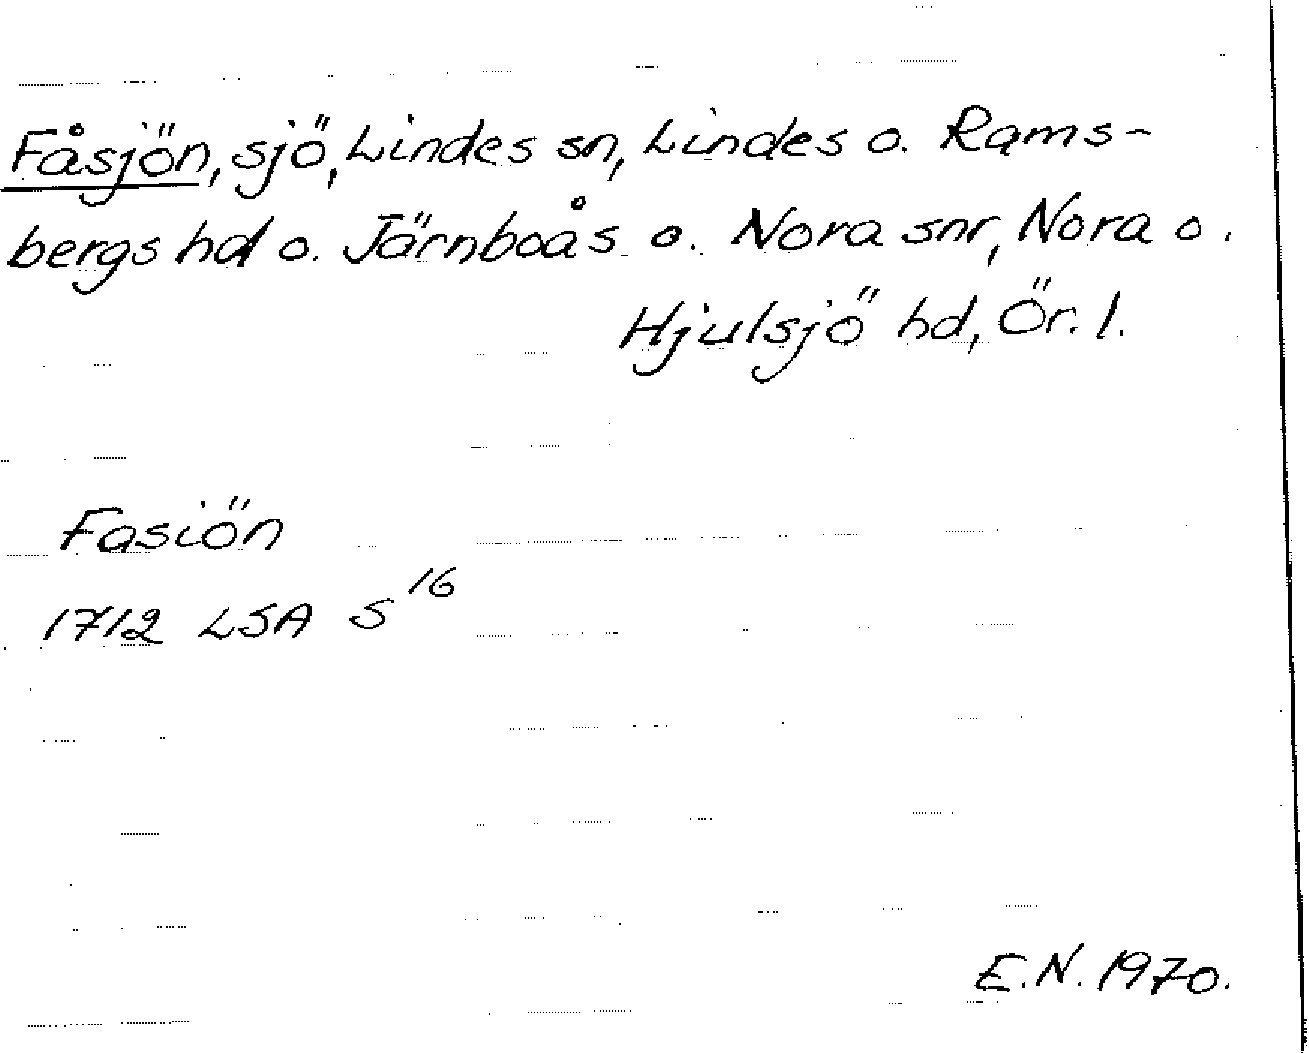 Fåsjön, sjö, Lindes sn, Lindes o. Rams-
bergs hd o. Järnboås o. Nora snr, Nora o.
Hjulsjö hd, Ör. l.
Fasiön
1712 LSA S 16
E.N. 1970.